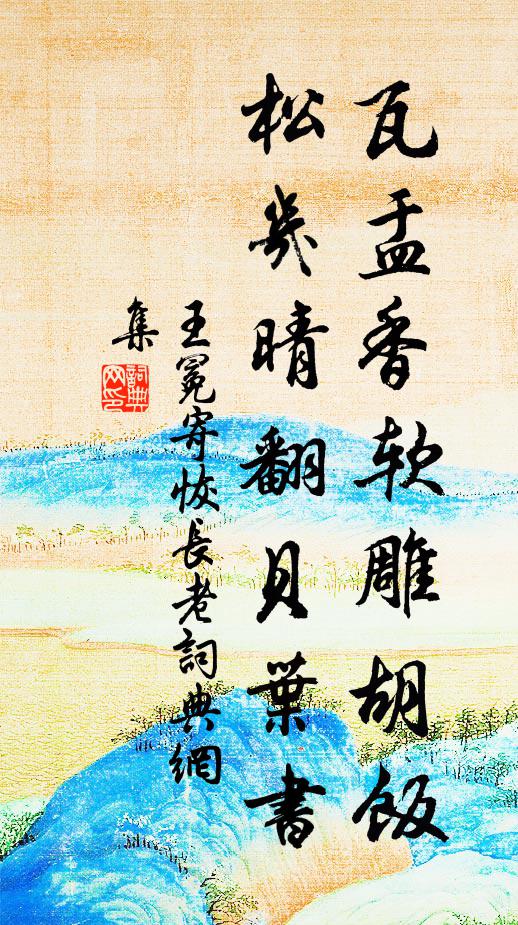 瓦盂香软雕胡飯
松几晴翻貝葉書
王冕寄恢長老詞典網
集
詞典
网印